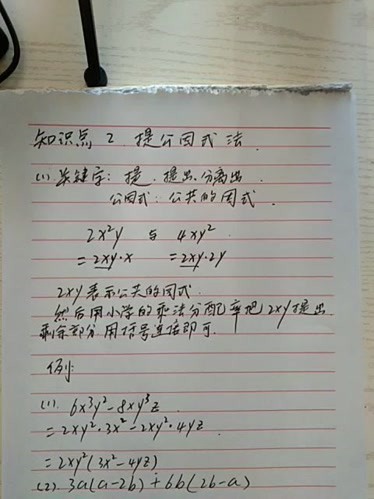 知识点2 提公因式法.
(1) 关键字: 提. 提出. 分离出.
公因式: 公共的因式.
2x²y 与 4xy².
=2xy·x =2xy·2y
2xy表示公共的因式.
然后用小学的乘法分配率把2xy提出
剩余部分用括号连接即可.
例:
(1). 6x³y²-8xy³z.
=2xy²·3x²-2xy²·4yz.
=2xy²(3x²-4yz)
(2). 3a(a-2b)+6b(2b-a)